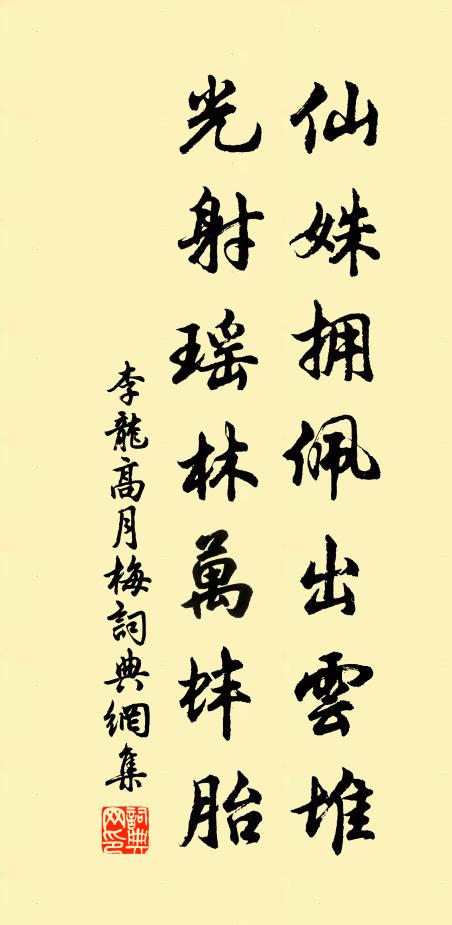 仙姝拥佩出雲堆
光射瑶林萬蚌胎
李龍高月梅詞典網集
詞典网印